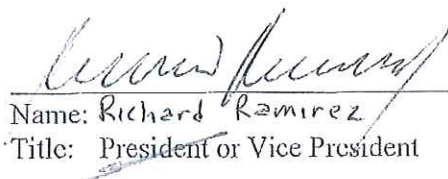 Name: Richard Ramirez
Title: President or Vice President